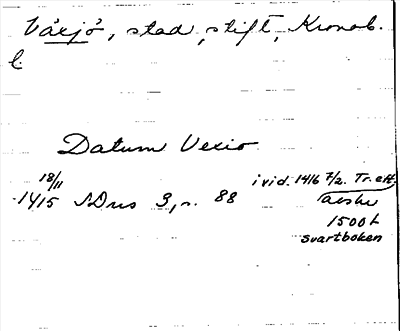 Växjö, stad, stift, Kronob.
l.
Datum Vexio
18/11
1415 SDns 3, s. 88
i vid. 1416 7/2. Tr. eft.
avskr
1500 t
Svartboken